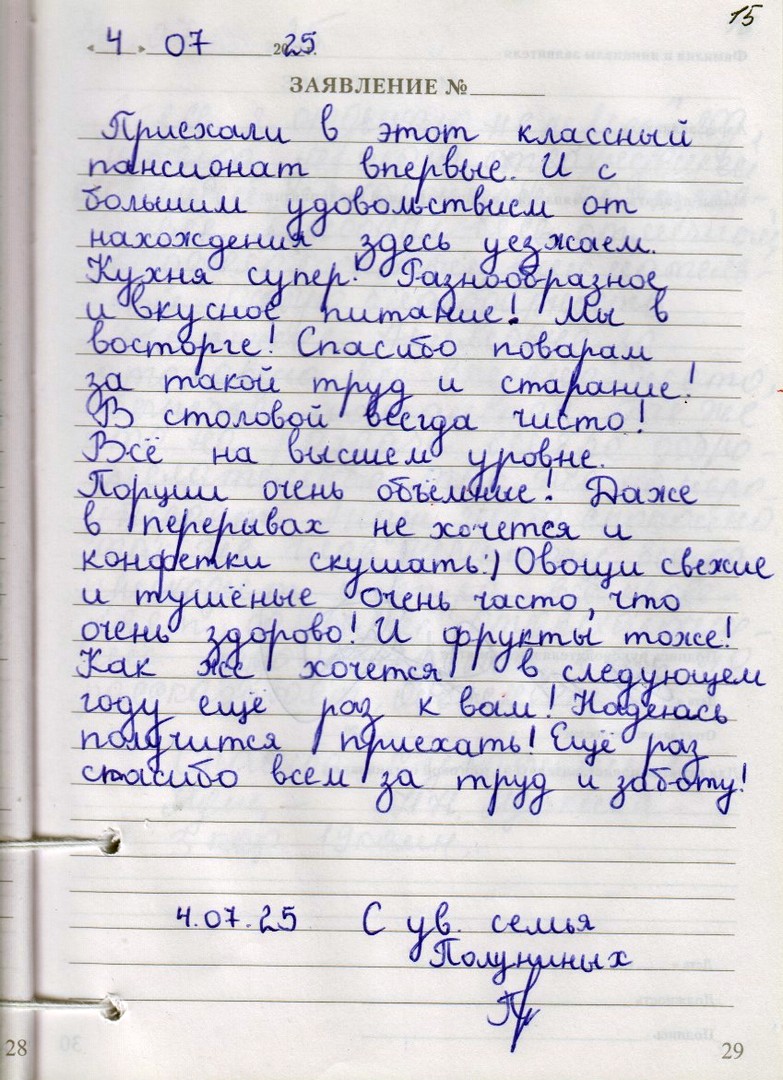 15
4 07 2025
ЗАЯВЛЕНИЕ №
Приехали в этот классный
пансионат впервые. И с
большим удовольствием от
нахождения здесь уезжаем.
Кухня супер! Разнообразное
и вкусное питание! Мы в
восторге! Спасибо поварам
за такой труд и старание!
В столовой всегда чисто!
Всё на высшем уровне.
Порции очень объёмние! Даже
в перерывах не хочется и
конфетки скушать:) Овощи свежие
и тушёные очень часто, что
очень здорово! И фрукты тоже!
Как же хочется в следующем
году ещё раз к вам! Надеюсь
получится приехать! Ещё раз
спасибо всем за труд и заботу!
4.07.25 С ув. семья
Полуниных
28
29